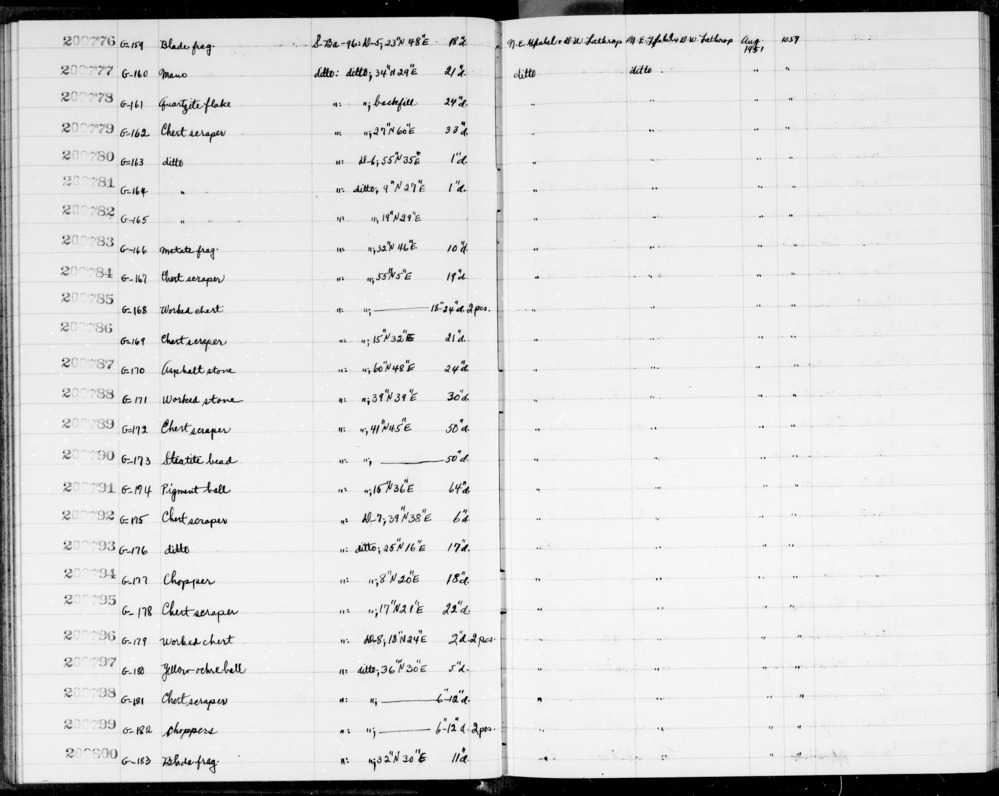 200776 G-159 Blade frag. S-Ba-96: D-5; 23"N 48"E 18"d. N.E. Gabel + D.W. Lathrop N.E. Gabel + D.W. Lathrop Aug 1951 1059
200777 G-160 Mano ditto: ditto; 34"N 29"E 21"d. ditto ditto " "
200778 G-161 Quartzite flake ": "; backfill 24"d. " " " "
200779 G-162 Chert scraper ": "; 27"N 60"E 33"d. " " " "
200780 G-163 ditto ": D-6; 55"N 35"E 1"d. " " " "
200781 G-164 " ": ditto; 9"N 27"E 1"d. " " " "
200782 G-165 " ": "; 19"N 29"E " " " "
200783 G-166 Metate frag. ": "; 32"N 46"E 10"d. " " " "
200784 G-167 Chert scraper ": "; 55"N 5"E 19"d. " " " "
200785 G-168 Worked chert ": "; — 18-24"d. 2 pcs. " " " "
200786 G-169 Chert scraper ": "; 15"N 32"E 21"d. " " " "
200787 G-170 Asphalt stone ": "; 60"N 48"E 24"d. " " " "
200788 G-171 Worked stone ": "; 39"N 39"E 30"d. " " " "
200789 G-172 Chert scraper ": "; 41"N 45"E 50"d. " " " "
200790 G-173 Steatite bead ": "; — 50"d. " " " "
200791 G-174 Pigment ball ": "; 15"N 36"E 64"d. " " " "
200792 G-175 Chert scraper ": D-7; 39"N 38"E 6"d. " " " "
200793 G-176 ditto ": ditto; 25"N 16"E 17"d. " " " "
200794 G-177 Chopper ": "; 8"N 20"E 18"d. " " " "
200795 G-178 Chert scraper ": "; 17"N 21"E 22"d. " " " "
200796 G-179 Worked chert ": D-8; 18"N 24"E 2"d. 2 pcs. " " " "
200797 G-180 Yellow ochre ball ": ditto; 36"N 30"E 5"d. " " " "
200798 G-181 Chert scraper ": "; — 6"-12"d. " " " "
200799 G-182 Choppers ": "; — 6"-12"d. 2 pcs. " " " "
200800 G-183 Blade frag. ": "; 32"N 30"E 11"d. " " " "